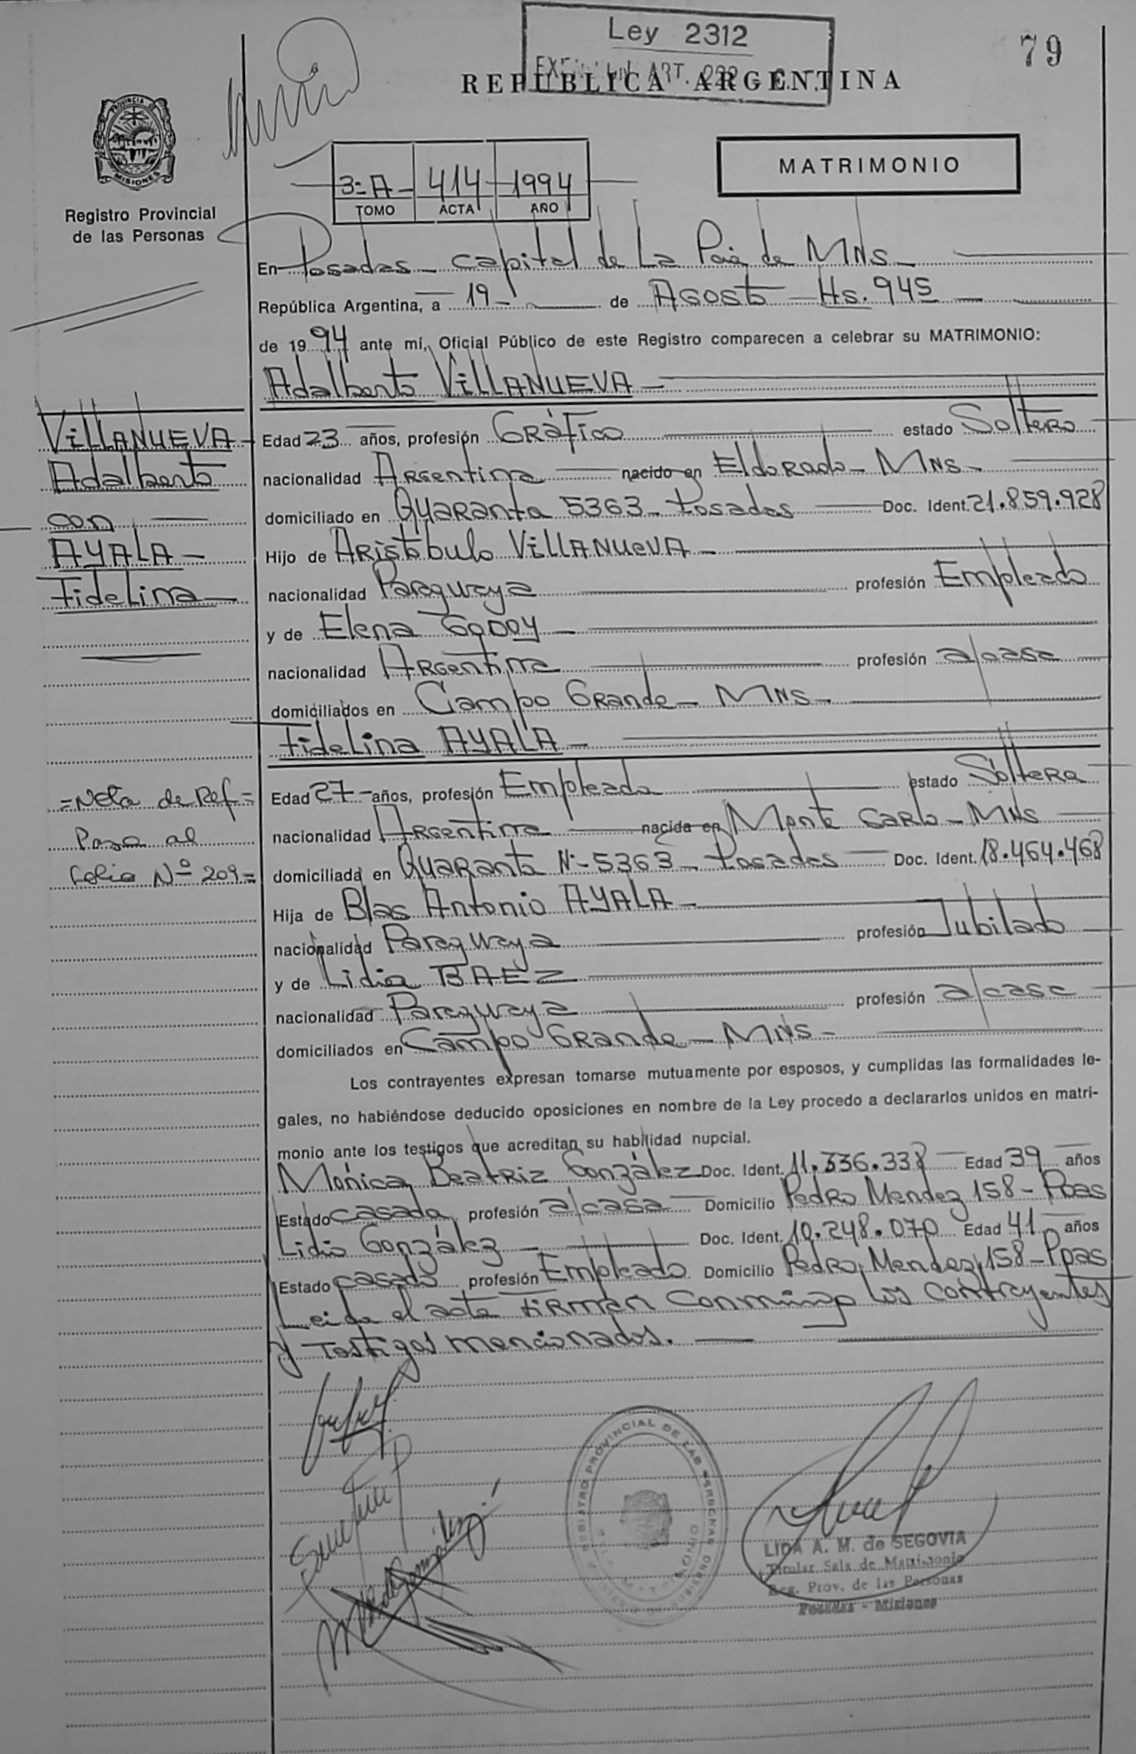 Ley 2312
79
REPUBLICA ARGENTINA
PROVINCIA DE
MISIONES
Registro Provincial
de las Personas
MATRIMONIO
3=A- 414 1994
TOMO ACTA AÑO
En Posadas - Capital de La Pcia de MNS -
República Argentina, a 19 - de Agosto - Hs. 945 -
de 1994 ante mí, Oficial Público de este Registro comparecen a celebrar su MATRIMONIO:
Adalberto VILLANUEVA -
VILLANUEVA -
Adalberto
con
AYALA -
Fidelina
Edad 23 años, profesión Gráfico estado Soltero
nacionalidad Argentina nacido en Eldorado - MNS -
domiciliado en Quaranta 5363 - Posadas - Doc. Ident. 21.859.928
Hijo de Aristóbulo VILLANUEVA -
nacionalidad Paraguaya profesión Empleado
y de Elena GODOY -
nacionalidad Argentina profesión a/casa
domiciliados en Campo Grande - MNS -
Fidelina AYALA -
=Nota de Ref=
Pasa al
folio Nº 209=
Edad 27 - años, profesión Empleada estado Soltera
nacionalidad Argentina nacida en Monte Carlo - MNS
domiciliada en Quaranta Nº- 5363 - Posadas - Doc. Ident. 18.464.468
Hija de Blas Antonio AYALA -
nacionalidad Paraguaya profesión Jubilado
y de Lidia BAEZ
nacionalidad Paraguaya profesión a/casa
domiciliados en Campo Grande - MNS -
Los contrayentes expresan tomarse mutuamente por esposos, y cumplidas las formalidades le-
gales, no habiéndose deducido oposiciones en nombre de la Ley procedo a declararlos unidos en matri-
monio ante los testigos que acreditan su habilidad nupcial.
Mónica Beatriz González Doc. Ident. 11.336.338 - Edad 39 años
Estado casada profesión a/casa - Domicilio Pedro Mendez 158 - Pdas
Lidio González Doc. Ident. 10.248.070 Edad 41 años
Estado casado profesión Empleado Domicilio Pedro Mendez 158 - Pdas
Leida el acta firman conmigo los contrayentes
y testigos mencionados.
REGISTRO PROVINCIAL DE LAS PERSONAS
LIDA A. M. de SEGOVIA
Titular Sala de Matrimonio
Reg. Prov. de las Personas
Posadas - Misiones